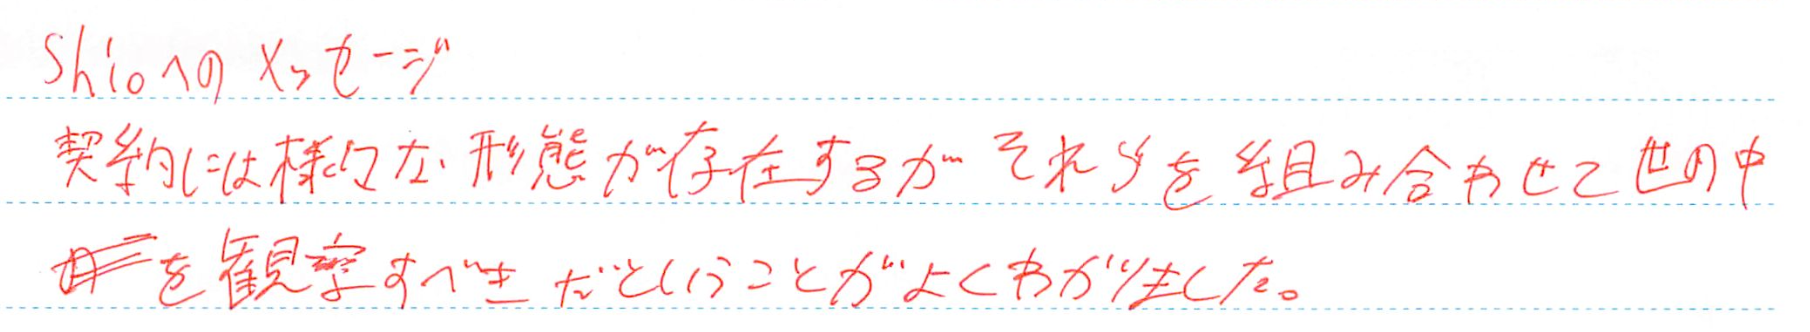 Shioへのメッセージ
契約には様々な形態が存在するがそれらを組み合わせて世の中
を観察すべきだということがよくわかりました。